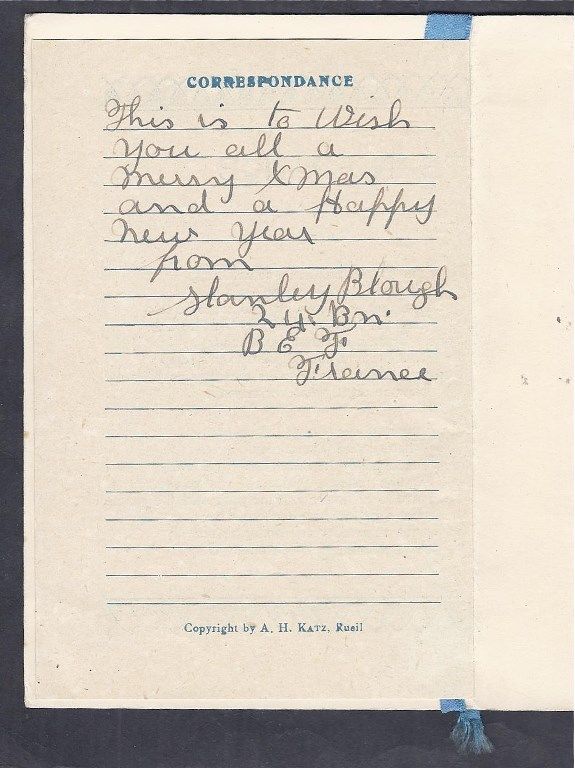 CORRESPONDANCE
This is to Wish
you all a
Merry XMas
and a Happy
New Year
from
Stanley Blough
24 Bn.
B E F
France
Copyright by A. H. KATZ, Rueil